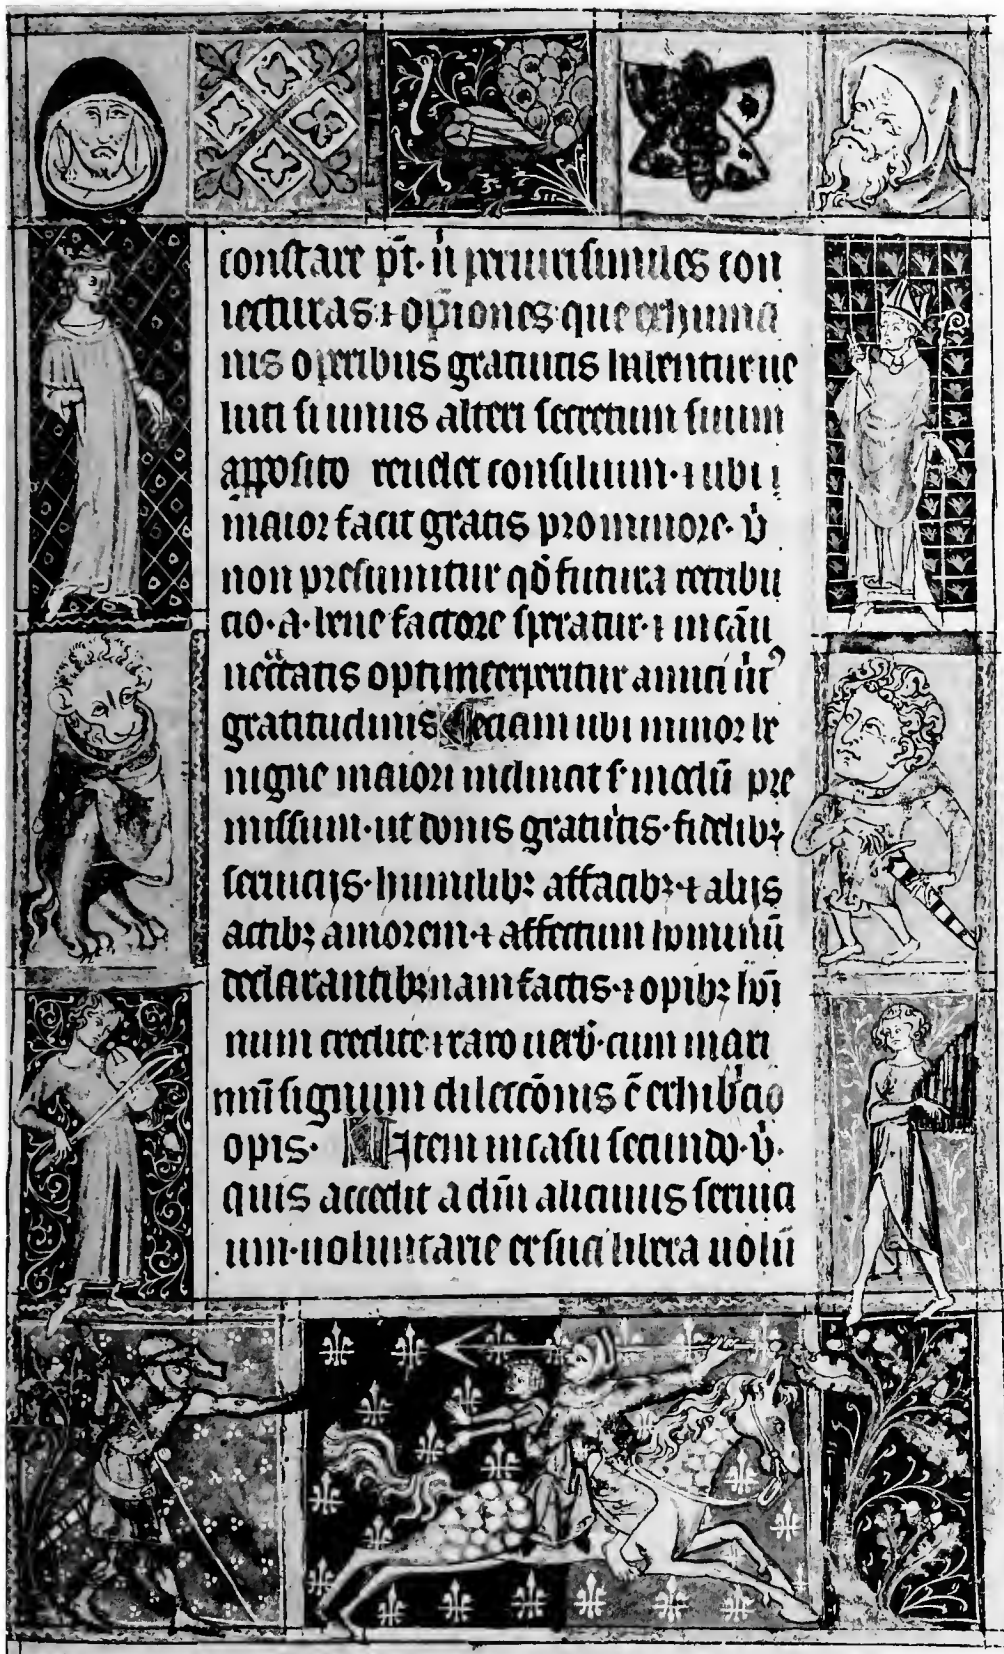 constare pt̄. ū per uerisimiles con
iecturas ⁊ opīones que ex huma
nis operibus gratuitis habentur ue
luti si unus alteri secretum suum
apposito reuelet consilium. ⁊ ubi
maior facit gratis pro minore. ù
non presumitur qď futura retribu
cio. a. bene factore speratur. ⁊ in cāu
optime interpretitur animi
gratitudinis etiam ubi minor be
nigne maiori inclinat s. modū pre
missum. ut donis gratuitis. fidelibꝫ
seruicijs. humilibꝫ affatibꝫ ⁊ alijs
actibꝫ amorem ⁊ affectum hominū
declarantibꝫ nam factis. ⁊ opibꝫ hōi
num credite ⁊ raro uerb̄. cum maxi
mū signum dilectōnis ē exhibicio
opis. Item in casu secundo. ù.
quis accedit ad dn̄i alicuius seruici
um. uoluntarie ex sua libera uolū